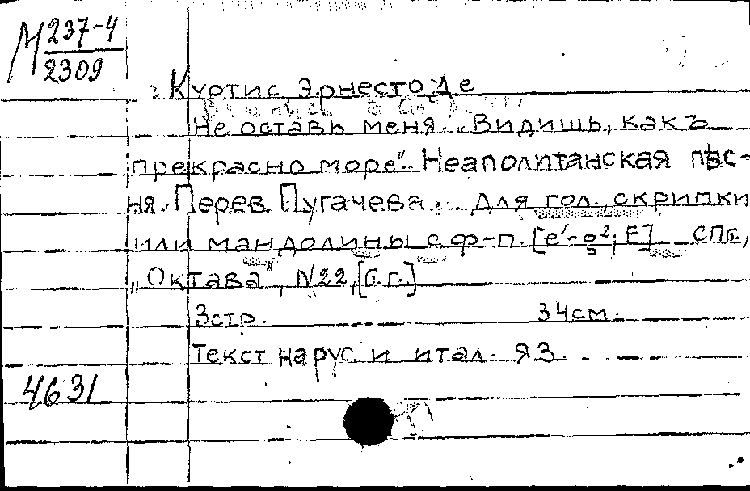 М 237-4
2309
Куртис Эрнесто де
Не оставь меня „Видишь, какъ
прекрасно море". Неаполитанская пѣс-
ня. Перев. Пугачева. Для гол., скрипки
или мандолины с ф-п. [e'-g², E] СПб,
„Октава", N22, [б.г.]
3стр. 34см.
Текст на рус. и итал. яз.
4631